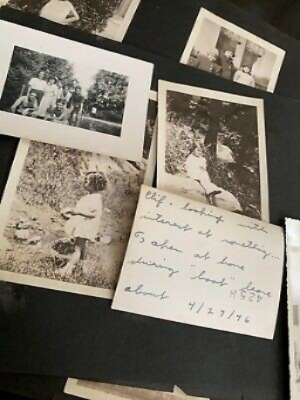 Elif - looking with
interest at something...
Taken at home
during "boot" leave
about 4/29/46